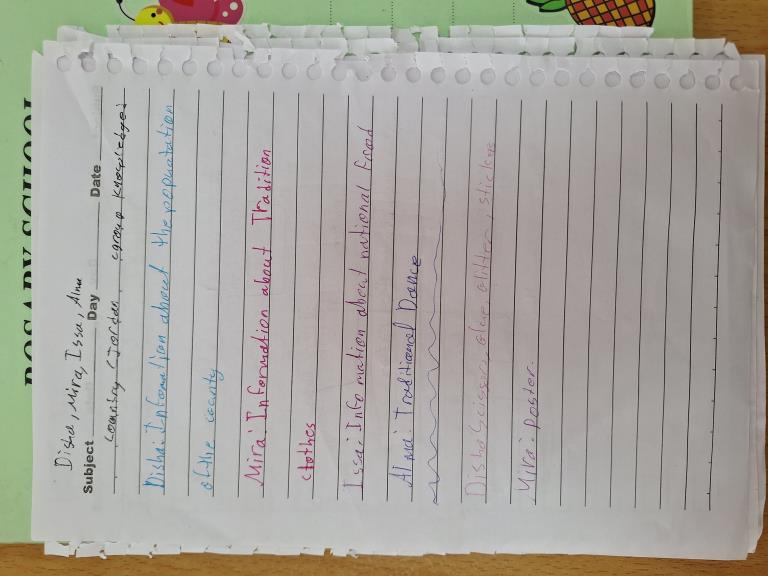 ROSARY SCHOOL
Disha, Mira, Issa, Alma
Subject Day Date
country (Jordan) (group knowledge)
Disha: Information about the popnatation
of the county
Mira: Information about Tradition
clothes
Issa: Info mation about national food
Alma: Traditional Dance
Disha: Scissors, glue, glitter, stickers
Mira: poster.